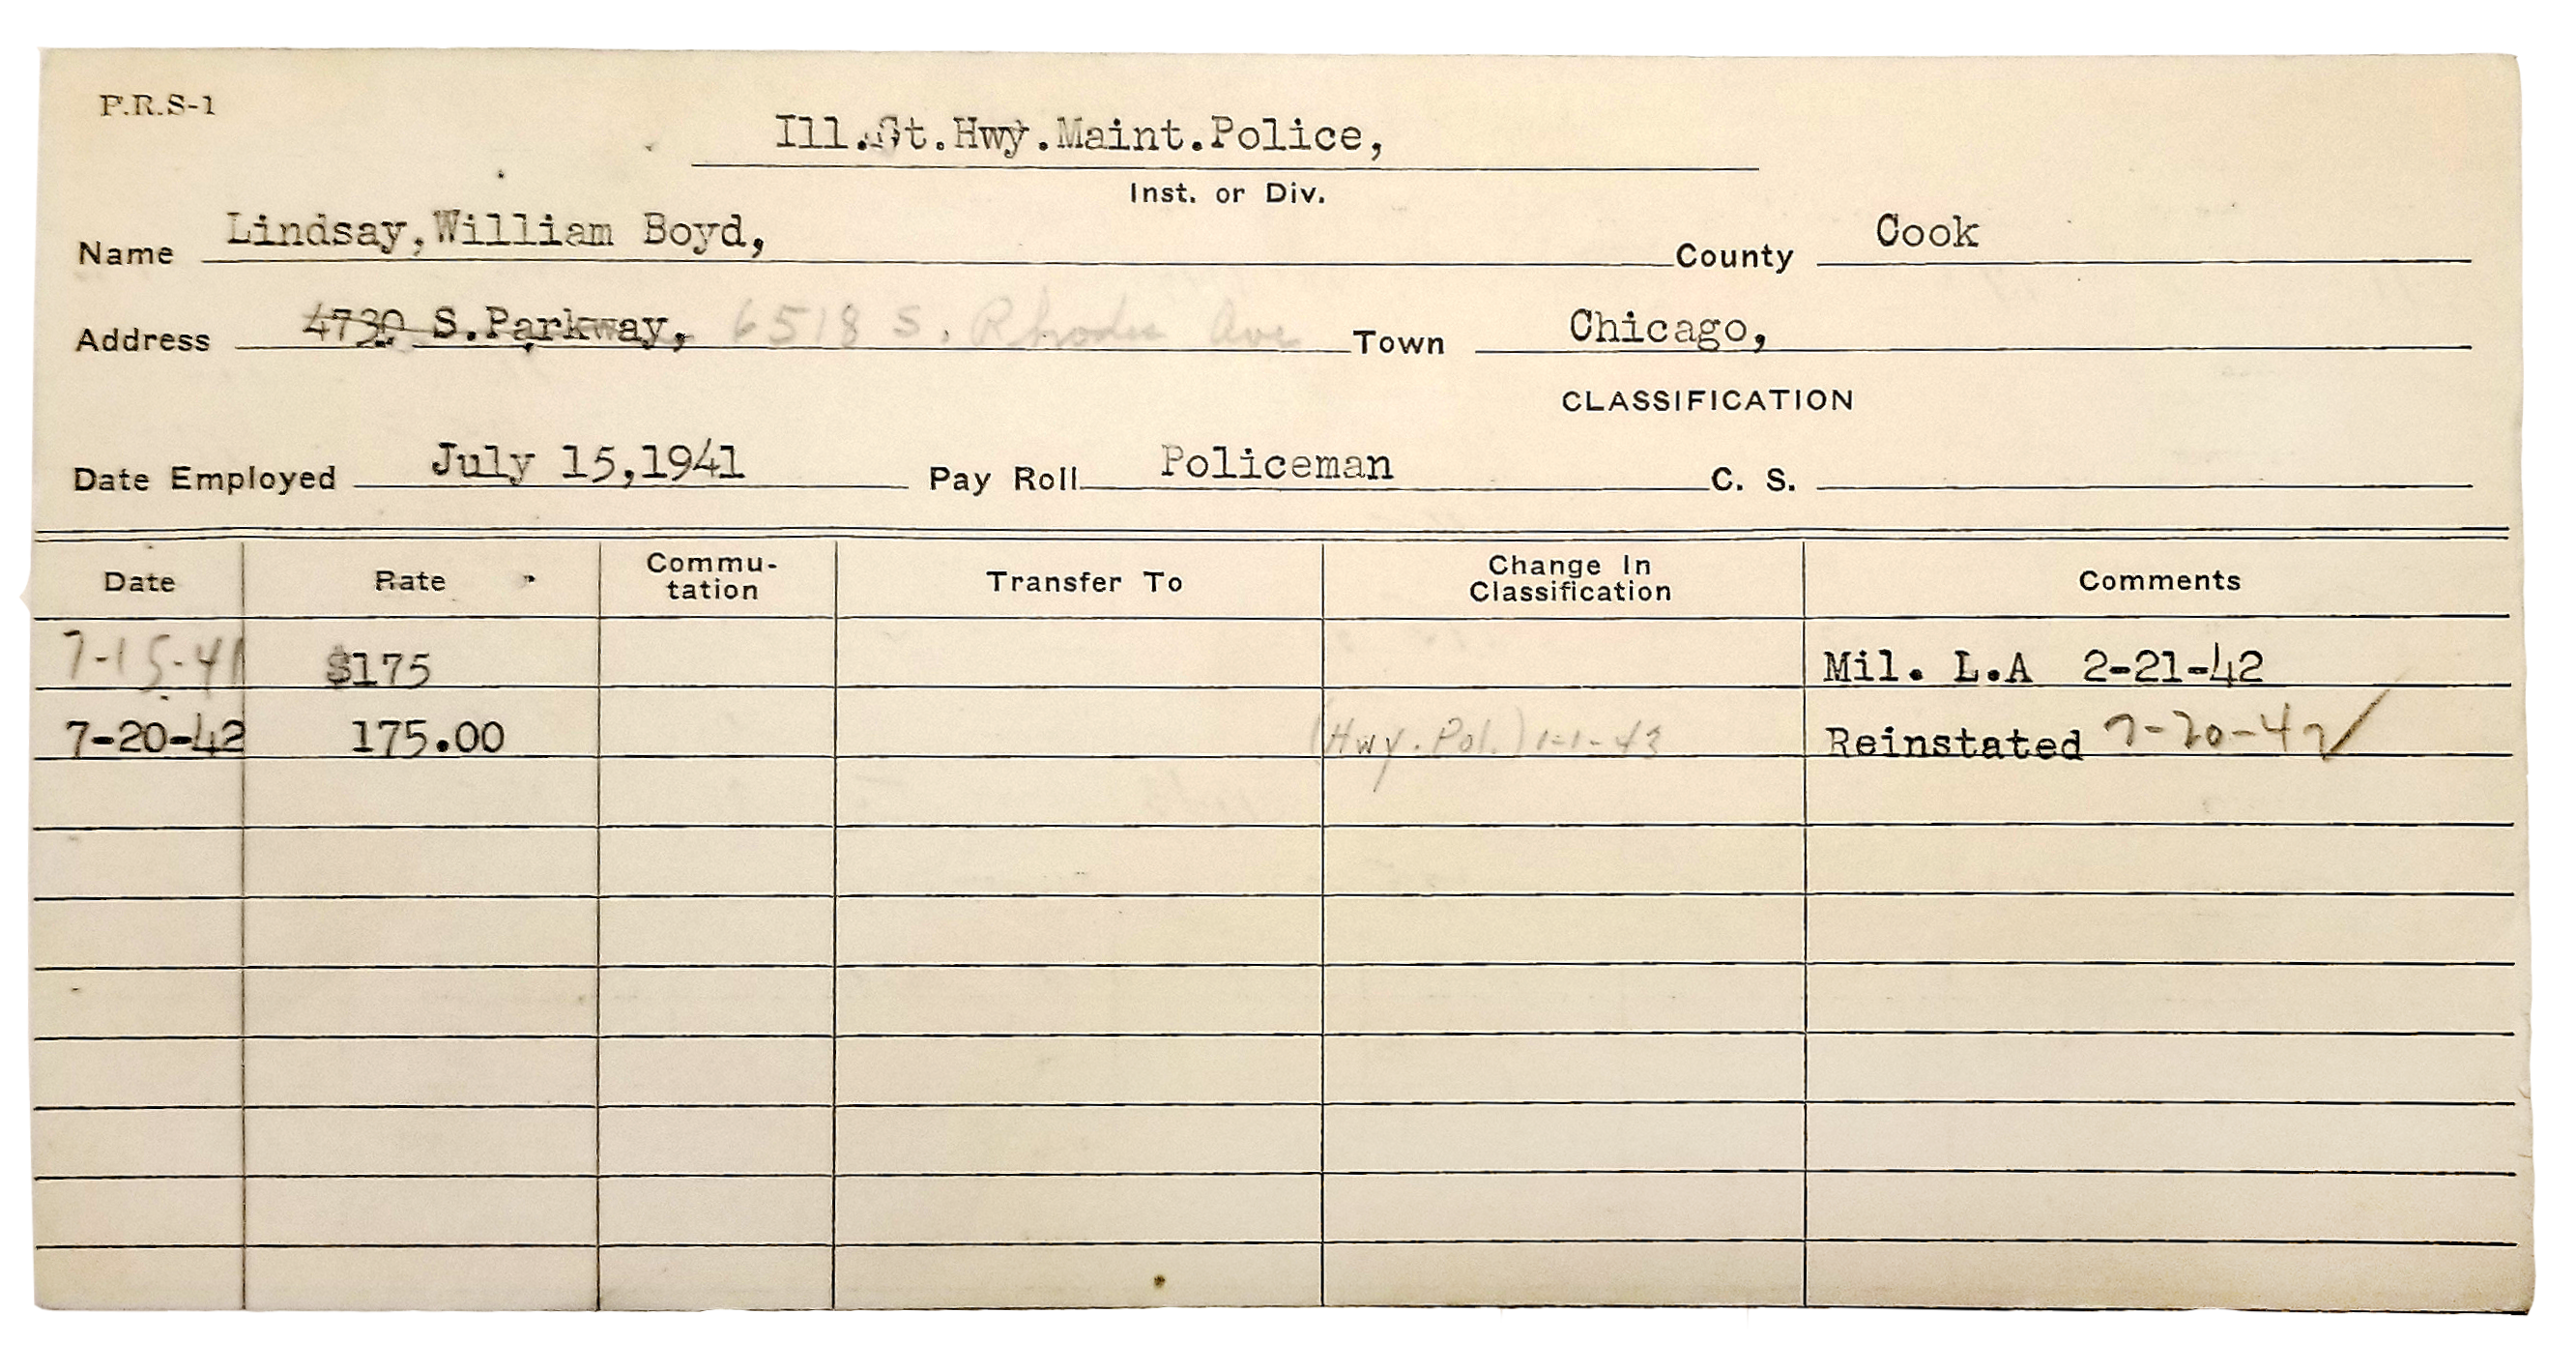 P.R.S-1
Ill.St.Hwy.Maint.Police,
Inst. or Div.
Name Lindsay,William Boyd, County Cook
Address 4730 S.Parkway, 6518 S. Rhodes Ave Town Chicago,
CLASSIFICATION
Date Employed July 15,1941 Pay Roll Policeman C. S.
Date Rate Commu-tation Transfer To Change In Classification Comments
7-15-41 $175 Mil. L.A 2-21-42
7-20-42 175.00 (Hwy. Pol.) 1-1-43 Reinstated 7-20-42